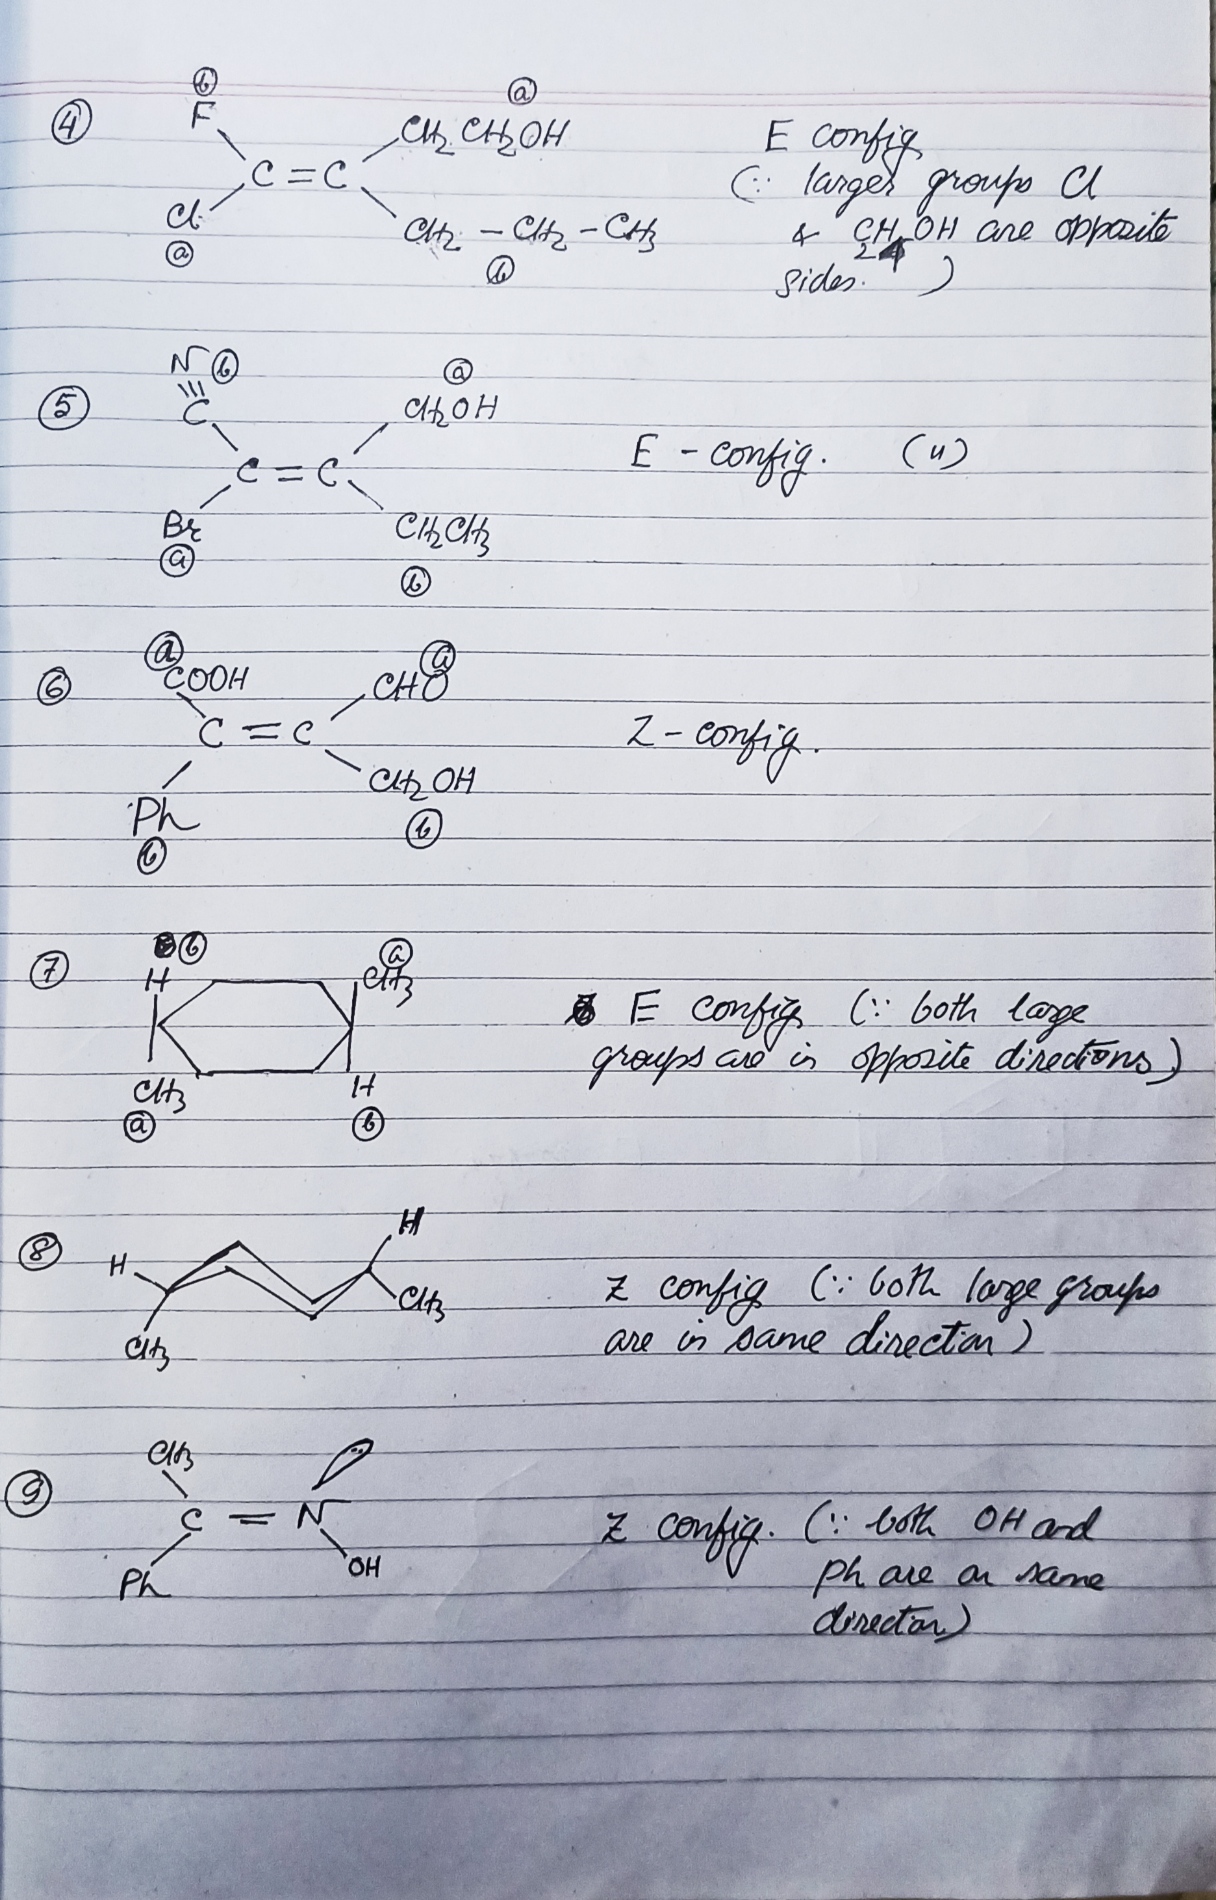 ④ F ⓑ CH₂CH₂OH ⓐ
C = C
Cl ⓐ CH₂ – CH₂ – CH₃ ⓑ
E config
(∵ larger groups Cl
& CH₂OH are opposite
sides. )
⑤ N ⓑ ⓐ
≡
C CH₂OH
C = C
Br CH₂CH₃
ⓐ ⓑ
E - config. (")
⑥ ⓐ ⓐ
COOH CHO
C = C
Ph CH₂OH
ⓑ ⓑ
Z - config.
⑦ ⓑ ⓐ
H CH₃
CH₃ H
ⓐ ⓑ
E config (∵ both large
groups are in opposite directions)
⑧ H H
CH₃ CH₃
Z config (∵ both large groups
are in same direction)
⑨ CH₃
C = N
Ph OH
Z config. (∵ both OH and
Ph are on same
direction)